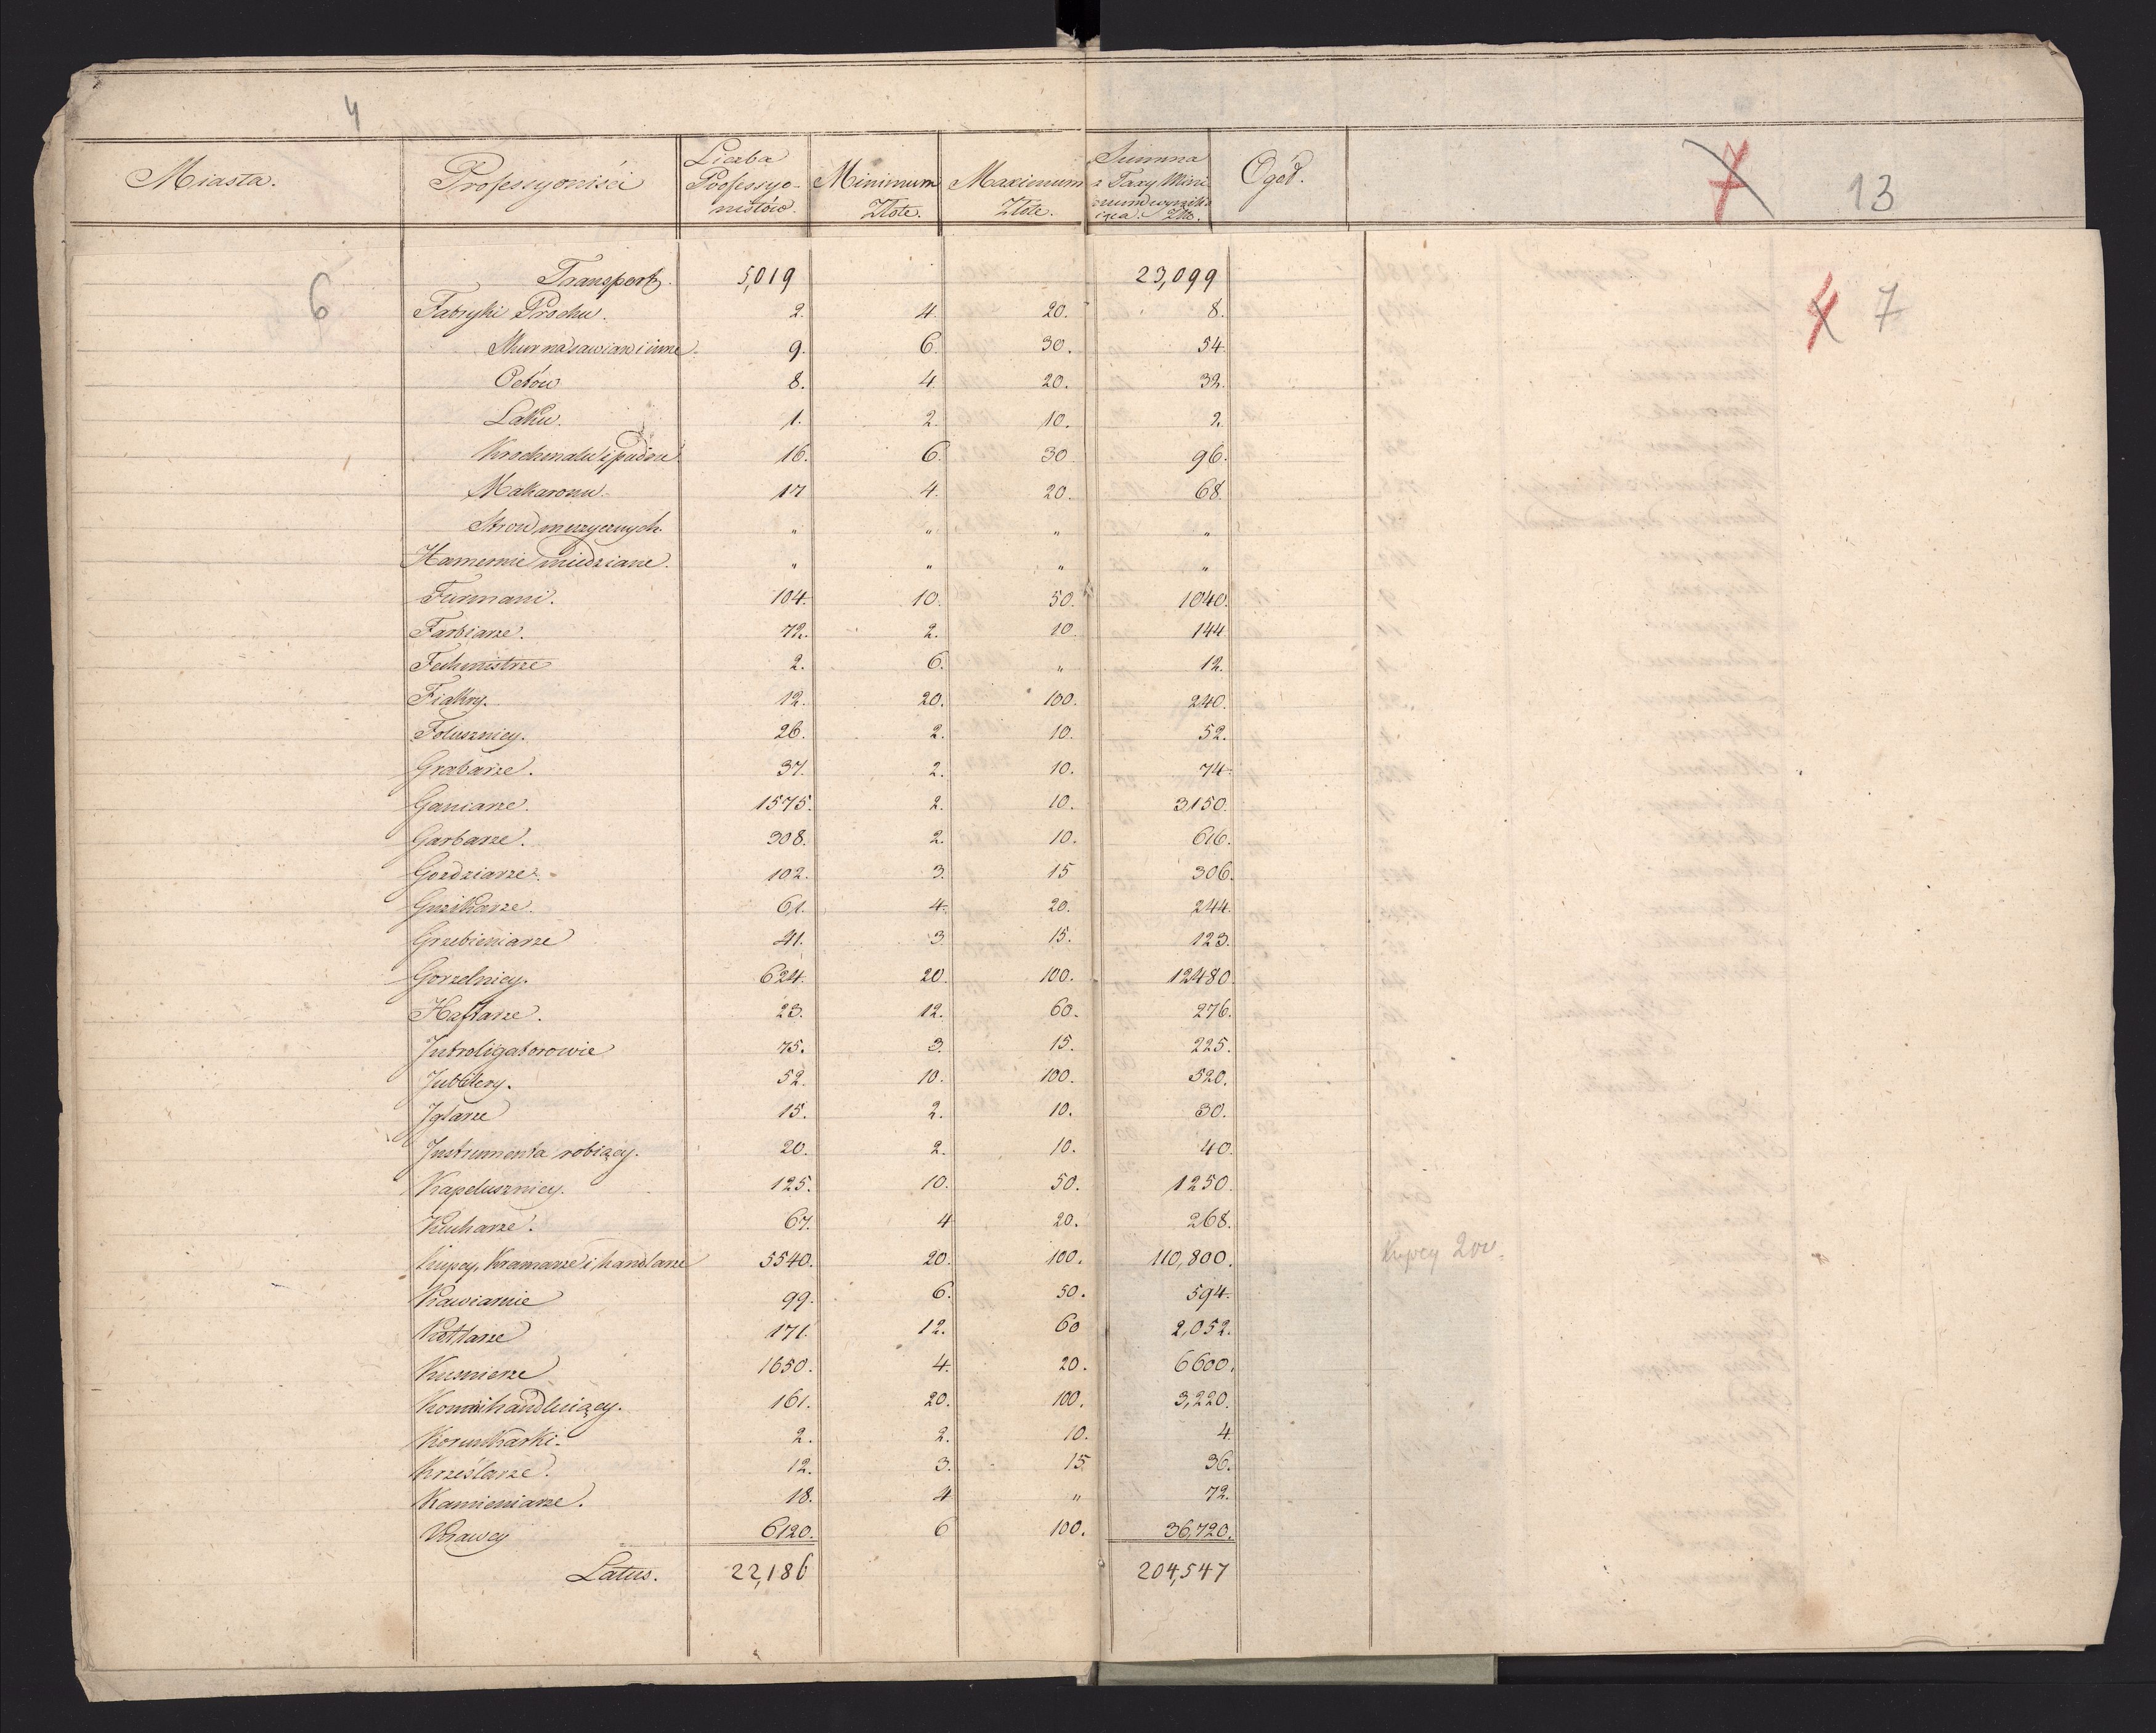 4
7 13
Miasta. Professyoniści Liczba Professyonistów. Minimum Złote. Maximum Złote. Summa z Taxy Minimum wynikaiąca. Złło. Ogół.
6
4 7
Transport. 5,019 23,099
Fabryki Prochu. 2. 4. 20. 8.
9. 6. 30. 54.
Octów 8. 4. 20. 32.
Laku. 1. 2. 10. 2.
Krochmalu i pudru 16. 6. 30 96.
Makaronu. 17 4. 20. 68.
Stron muzycznych. " " " "
Hamernie miedziane. " " " "
Furmani. 104. 10. 50. 1040.
Farbiarze. 72. 2. 10. 144.
Fechmistrze 2. 6. " 12.
Fiakry. 12. 20. 100. 240.
Folusznicy. 26. 2. 10. 52.
Grabarze. 37. 2. 10. 74.
Garncarze. 1575. 2. 10. 3150.
Garbarze. 308. 2. 10. 616.
Gozdziarze. 102. 3. 15 306.
Guzikarze. 61. 4. 20. 244.
Grzebieniarze 41. 3. 15. 123.
Gorzelnicy. 624. 20. 100. 12480
Haftarze. 23. 12. 60. 276.
Introligatorowie 75. 3. 15. 225.
Jubilery. 52. 10. 100. 520.
Iglarze 15. 2. 10. 30.
Instrumenta robiący. 20. 2. 10. 40.
Kapelusznicy. 125. 10. 50. 1250.
Kucharze. 67. 4 20. 268.
Kupcy, Kramarze i handlarze 5540. 20. 100. 110,800. Kupcy
Kawiarnie 99. 6. 50. 594.
Kotlarze 171. 12. 60 2,052.
Kusnierze 1650. 4. 20. 6600.
Końmi handluiący. 161. 20. 100. 3,220.
Koronkarki. 2. 2. 10. 4.
Krześlarze. 12. 3. 15 36.
Kamieniarze. 18. 4 " 72.
Krawcy 6120. 6 100. 36,720.
Latus. 22,186 204,547